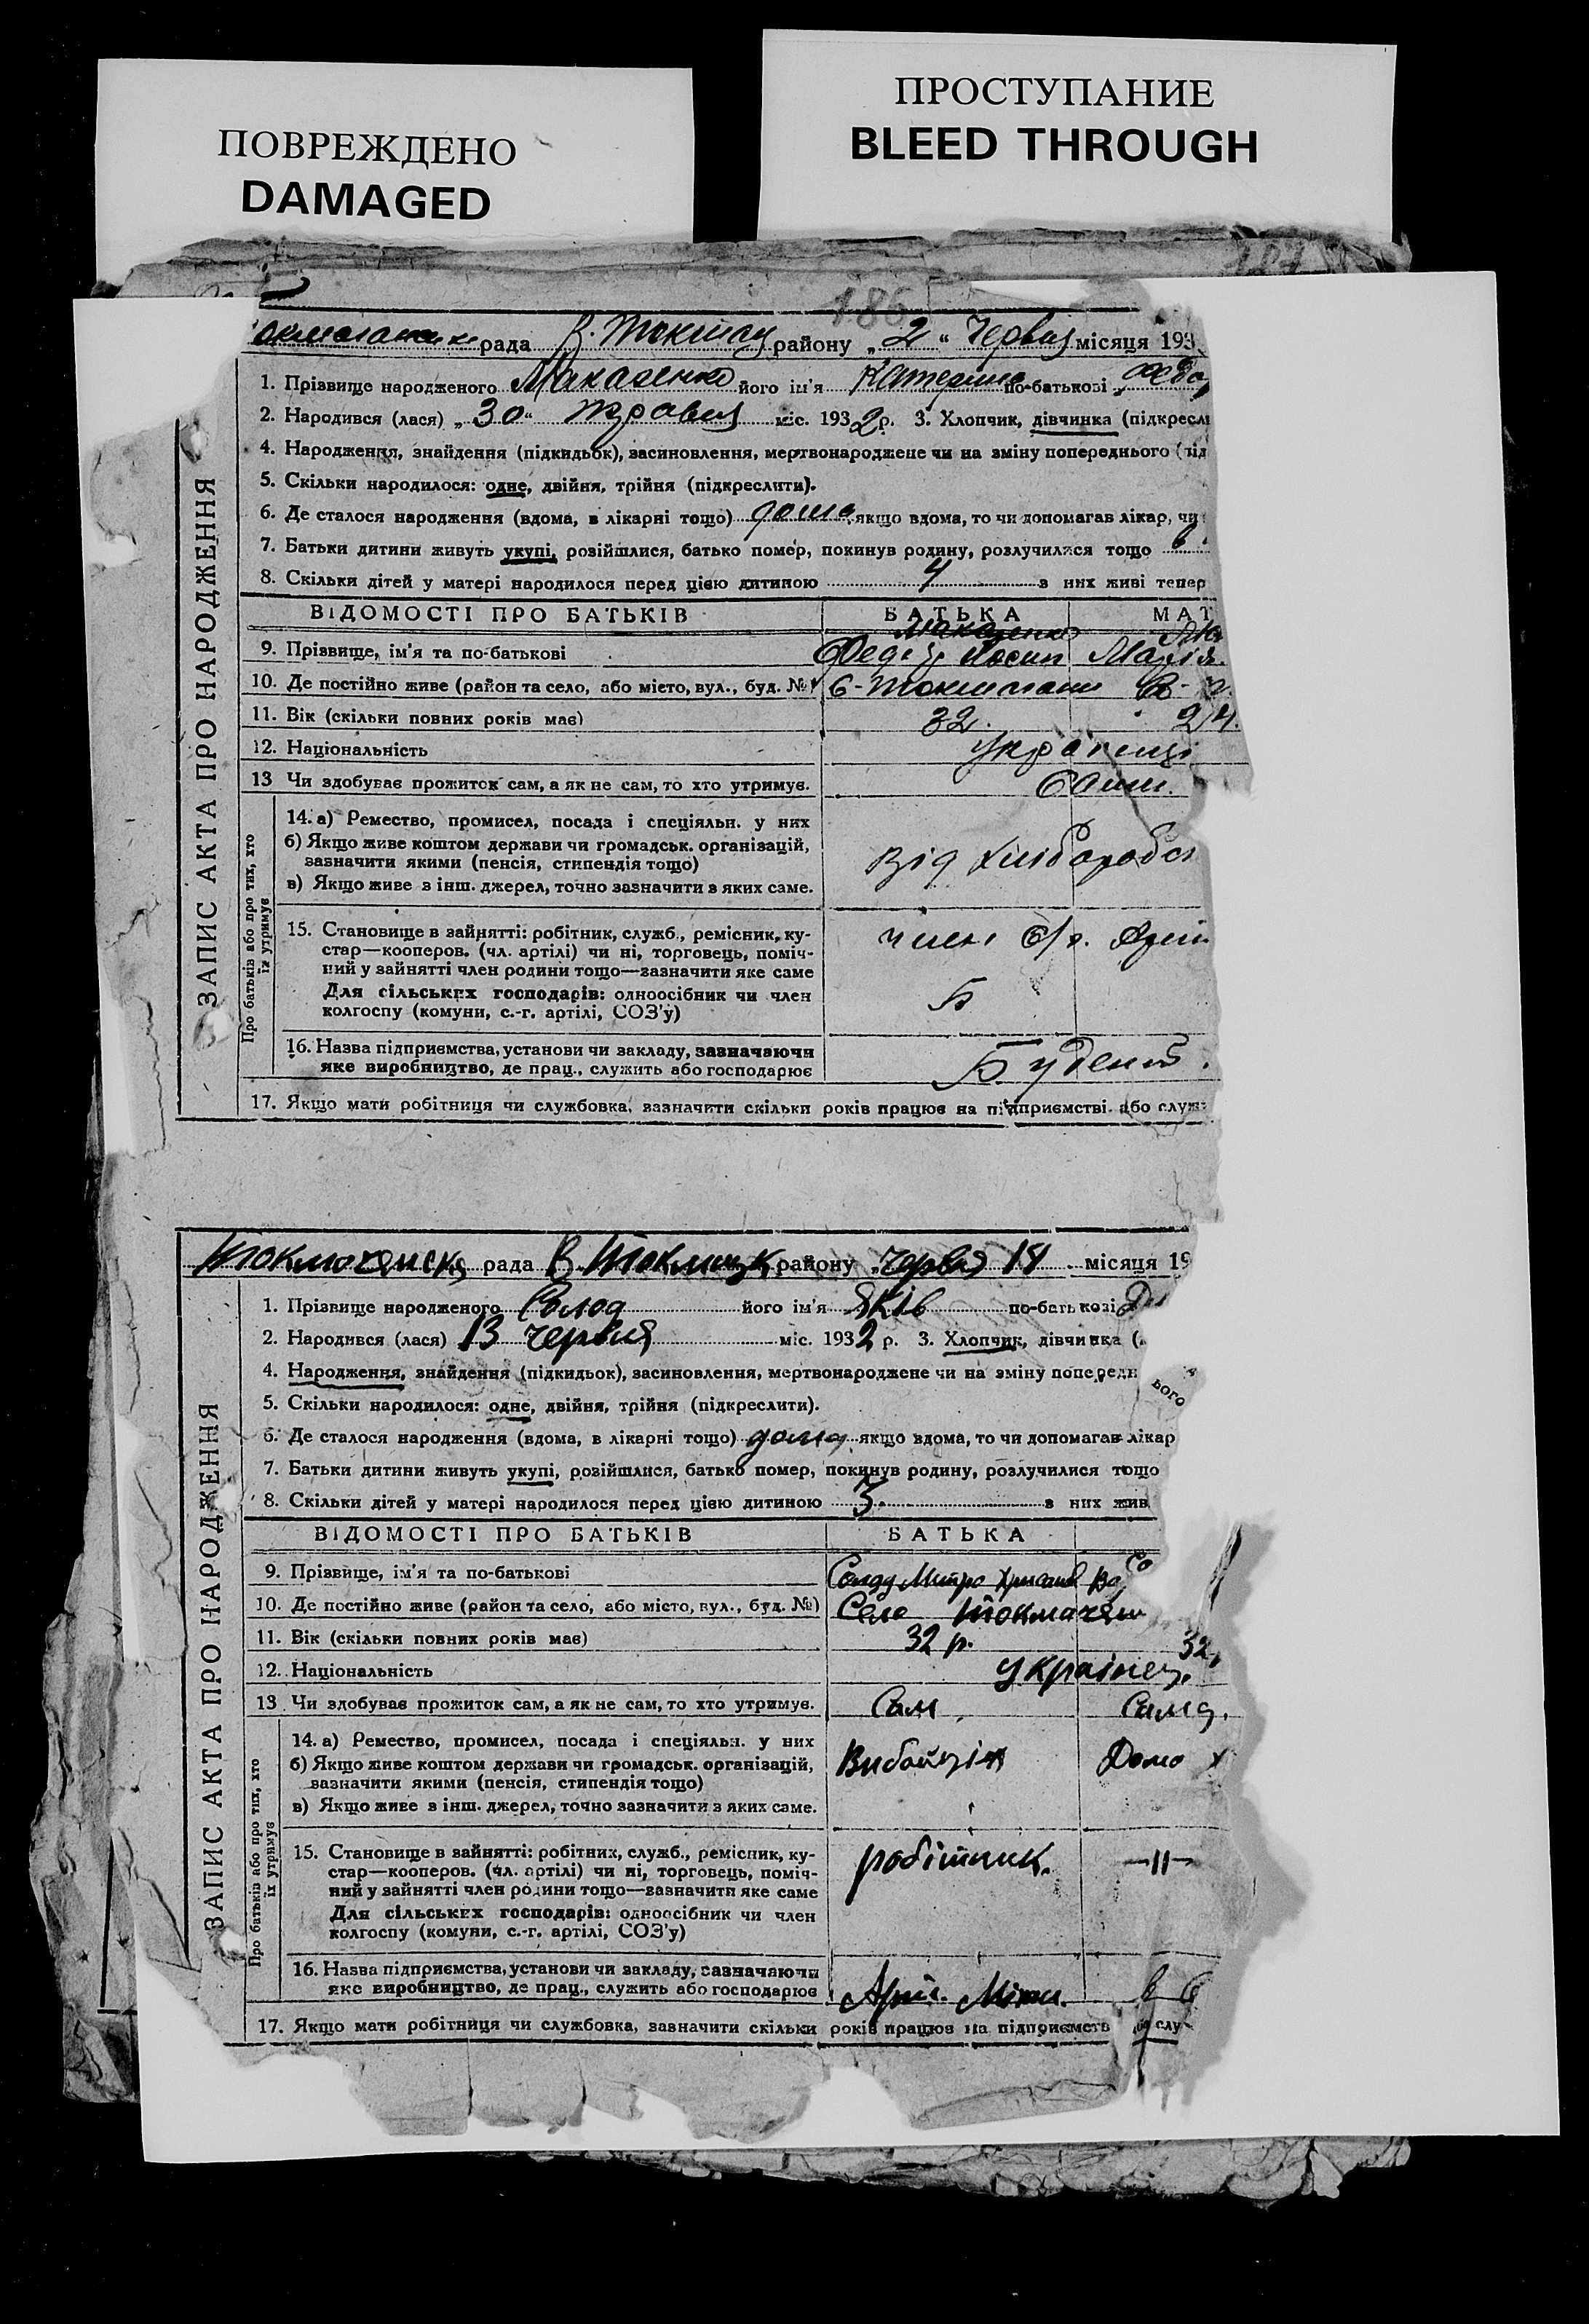 ПОВРЕЖДЕНО
DAMAGED
ПРОСТУПАНИЕ
BLEED THROUGH
186
рада В. Токмач району „2“ Червня місяця 193
ЗАПИС АКТА ПРО НАРОДЖЕННЯ
1. Прізвище народженого Макаренко його ім'я Катерина по-батькові Федо
2. Народився (лася) „30“ Травня міс. 1932 р. 3. Хлопчик, дівчинка (підкресл
4. Народження, знайдення (підкидьок), засиновлення, мертвонароджене чи на зміну попереднього (під
5. Скільки народилося: одне, двійня, трійня (підкреслити).
6. Де сталося народження (вдома, в лікарні тощо) дома якщо вдома, то чи допомагав лікар, чи
7. Батьки дитини живуть укупі, розійшлися, батько помер, покинув родину, розлучилися тощо
8. Скільки дітей у матері народилося перед цією дитиною 4 з них живі тепер
ВІДОМОСТІ ПРО БАТЬКІВ БАТЬКА МАТ
9. Прізвище, ім'я та по-батькові Макаренко Федір Йосип Марія
10. Де постійно живе (район та село, або місто, вул., буд. №)
11. Вік (скільки повних років має) 32. 24.
12. Національність українці
13 Чи здобуває прожиток сам, а як не сам, то хто утримує. Сами.
Про батьків або про тих, хто їх утримує
14. а) Ремество, промисел, посада і спеціяльн. у них
б) Якщо живе коштом держави чи громадськ. організацій,
зазначити якими (пенсія, стипендія тощо)
від хліборобст
в) Якщо живе з інш. джерел, точно зазначити з яких саме.
15. Становище в зайнятті: робітник, служб., ремісник, ку-
стар—кооперов. (чл. артілі) чи ні, торговець, поміч-
ний у зайнятті член родини тощо—зазначити яке саме
Для сільських господарів: одноосібник чи член
колгоспу (комуни, с.-г. артілі, СОЗ'у)
член с/г.
16. Назва підприємства, установи чи закладу, зазначаючи
яке виробництво, де прац., служить або господарює
Будент.
17. Якщо мати робітниця чи службовка, зазначити скільки років працює на підприємстві або служ
Токмачанска рада В. Токмацьк району „Червня 14 місяця 19
ЗАПИС АКТА ПРО НАРОДЖЕННЯ
1. Прізвище народженого Солод його ім'я Яків по-батькові
2. Народився (лася) 13 червня міс. 1932 р. 3. Хлопчик, дівчинка (
4. Народження, знайдення (підкидьок), засиновлення, мертвонароджене чи на зміну попереднього
5. Скільки народилося: одне, двійня, трійня (підкреслити).
6. Де сталося народження (вдома, в лікарні тощо) дома якщо вдома, то чи допомагав лікар
7. Батьки дитини живуть укупі, розійшлися, батько помер, покинув родину, розлучилися тощо
8. Скільки дітей у матері народилося перед цією дитиною 3 з них жив
ВІДОМОСТІ ПРО БАТЬКІВ БАТЬКА
9. Прізвище, ім'я та по-батькові Митро
10. Де постійно живе (район та село, або місто, вул., буд. №) Село Токмачан
11. Вік (скільки повних років має) 32 р. 32
12. Національність українец.
13 Чи здобуває прожиток сам, а як не сам, то хто утримує. Сам Сама.
Про батьків або про тих, хто їх утримує
14. а) Ремество, промисел, посада і спеціяльн. у них
б) Якщо живе коштом держави чи громадськ. організацій,
зазначити якими (пенсія, стипендія тощо)
Вибойщік Домо х
в) Якщо живе з інш. джерел, точно зазначити з яких саме.
15. Становище в зайнятті: робітник, служб., ремісник, ку-
стар—кооперов. (чл. артілі) чи ні, торговець, поміч-
ний у зайнятті член родини тощо—зазначити яке саме
Для сільських господарів: одноосібник чи член
колгоспу (комуни, с.-г. артілі, СОЗ'у)
робітник. —11—
16. Назва підприємства, установи чи закладу, зазначаючи
яке виробництво, де прац., служить або господарює
17. Якщо мати робітниця чи службовка, зазначити скільки років працює на підприємств або слу